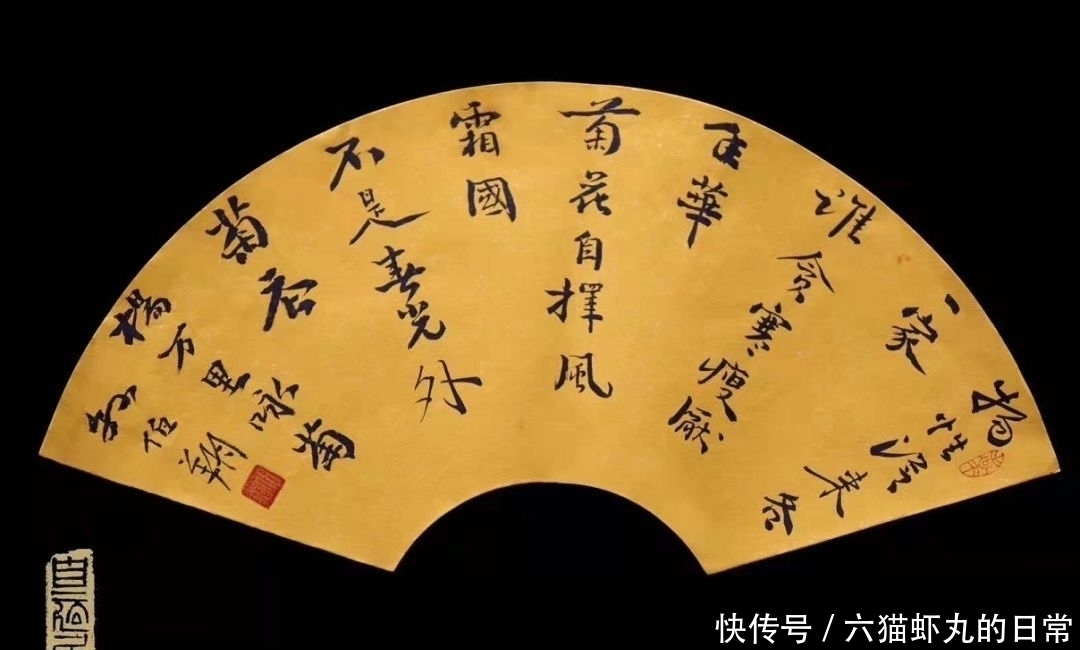 物性從来各
一家
誰貪寒瘦厭
年華
菊花自擇風
霜國
不是春光外
菊
楊万里咏菊
孫伯翔
快传号 / 六猫虾丸的日常